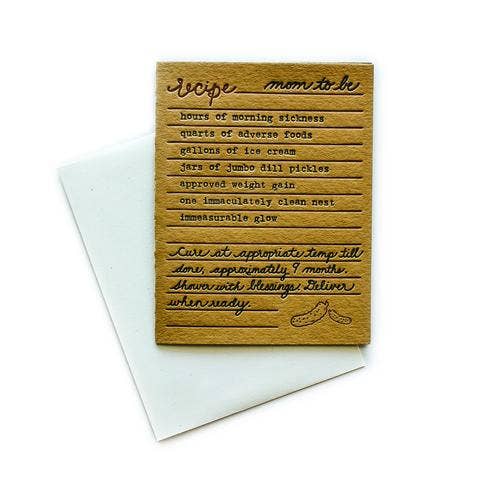 recipe mom to be
hours of morning sickness
quarts of adverse foods
gallons of ice cream
jars of jumbo dill pickles
approved weight gain
one immaculately clean nest
immeasurable glow
Cure at appropriate temp till
done, approximately 9 months.
Shower with blessings. Deliver
when ready.